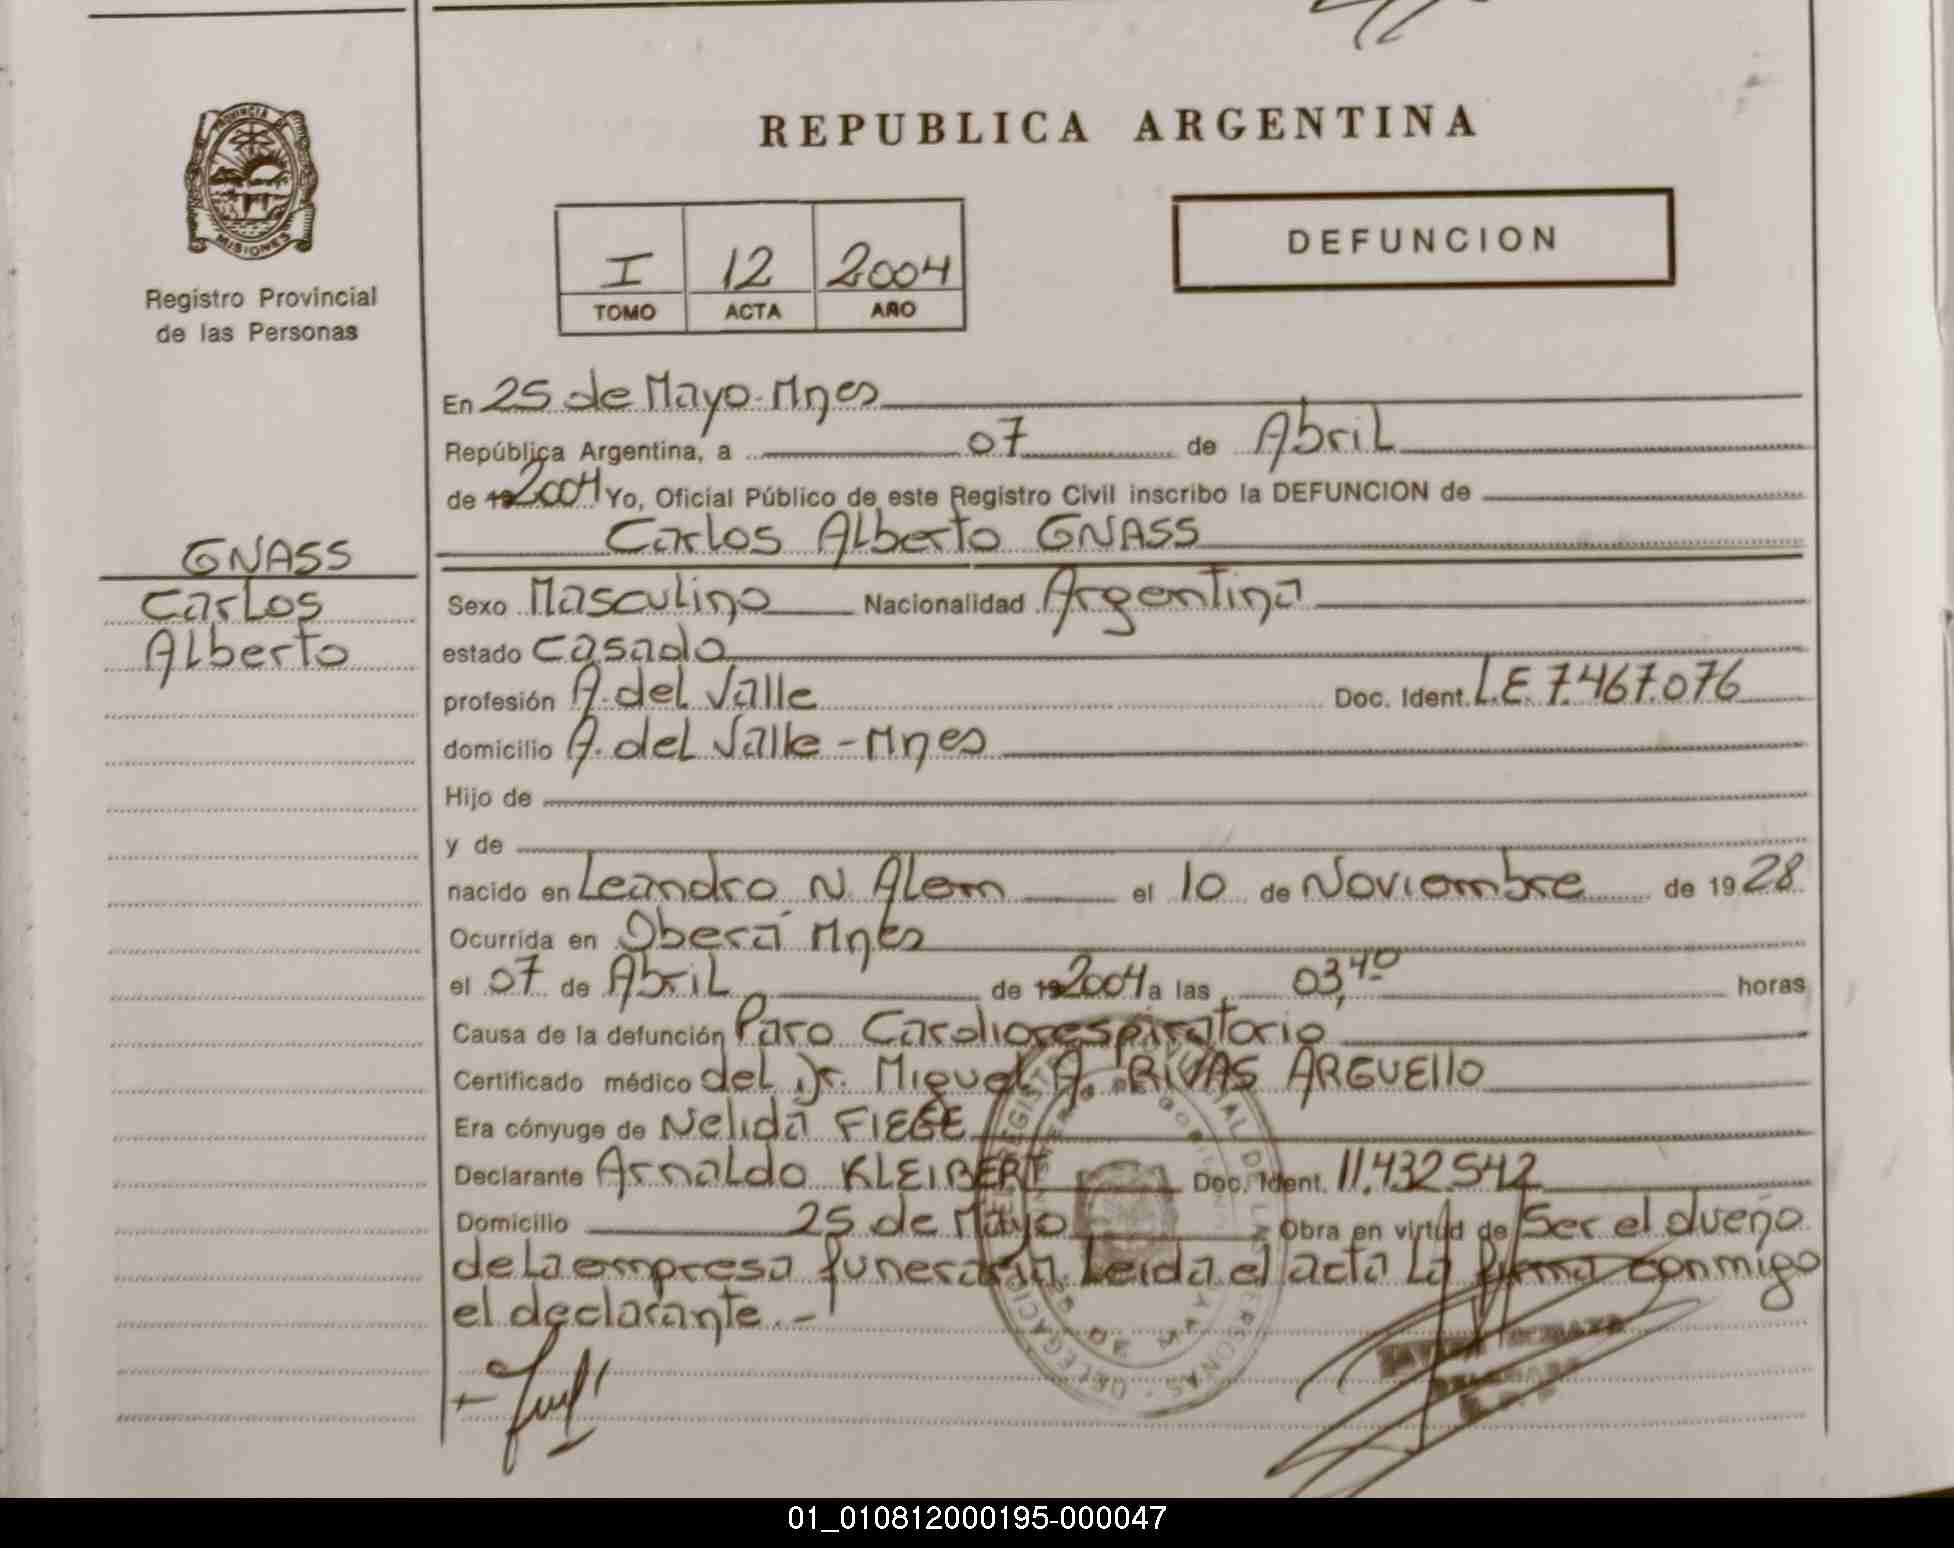 REPUBLICA ARGENTINA
PROVINCIA DE
MISIONES
Registro Provincial
de las Personas
I 12 2004
TOMO ACTA AÑO
DEFUNCION
En 25 de Mayo-Mnes
República Argentina, a 07 de Abril
de 192004 Yo, Oficial Público de este Registro Civil inscribo la DEFUNCION de
Carlos Alberto GNASS
GNASS
Carlos
Alberto
Sexo Masculino Nacionalidad Argentina
estado casado
profesión A. del Valle Doc. Ident. L.E. 7.467.076
domicilio A. del Valle - Mnes
Hijo de
y de
nacido en Leandro N. Alem el 10 de Noviembre de 1928
Ocurrida en Oberá Mnes
el 07 de Abril de 192004 a las 03,40 horas
Causa de la defunción Paro Cardiorespiratorio
Certificado médico del Dr. Miguel A. RIVAS ARGUEllO
Era cónyuge de Nelida FIEGE
Declarante Arnaldo KLEIBERT Doc. Ident. 11.432.542
Domicilio 25 de Mayo Obra en virtud de Ser el dueño
de la empresa funeraria. Leida el acta la firma conmigo
el declarante.-
01_010812000195-000047